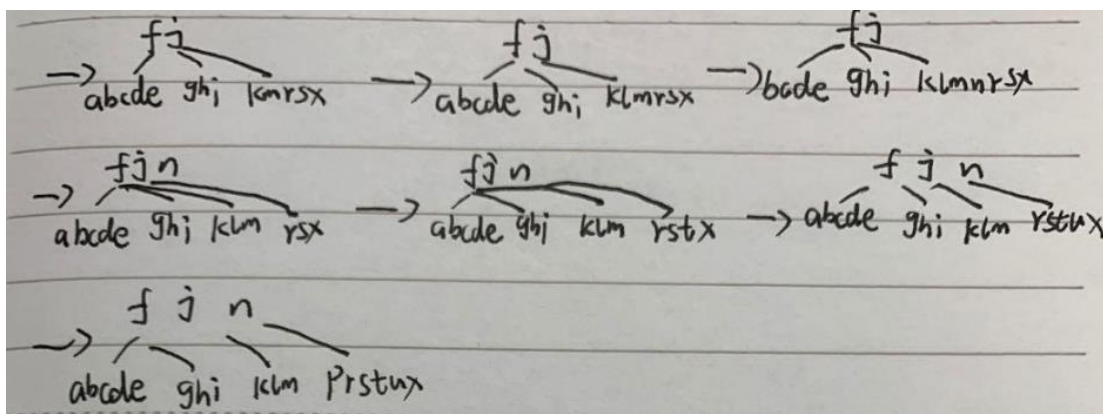 fj fj fj
→ abcde ghi kmrsx → abcde ghi klmrsx → bcde ghi klmnrsx
fjn fjn f j n
→ abcde ghi klm rsx → abcde ghi klm rstx → abcde ghi klm rstux
f j n
→ abcde ghi klm prstux